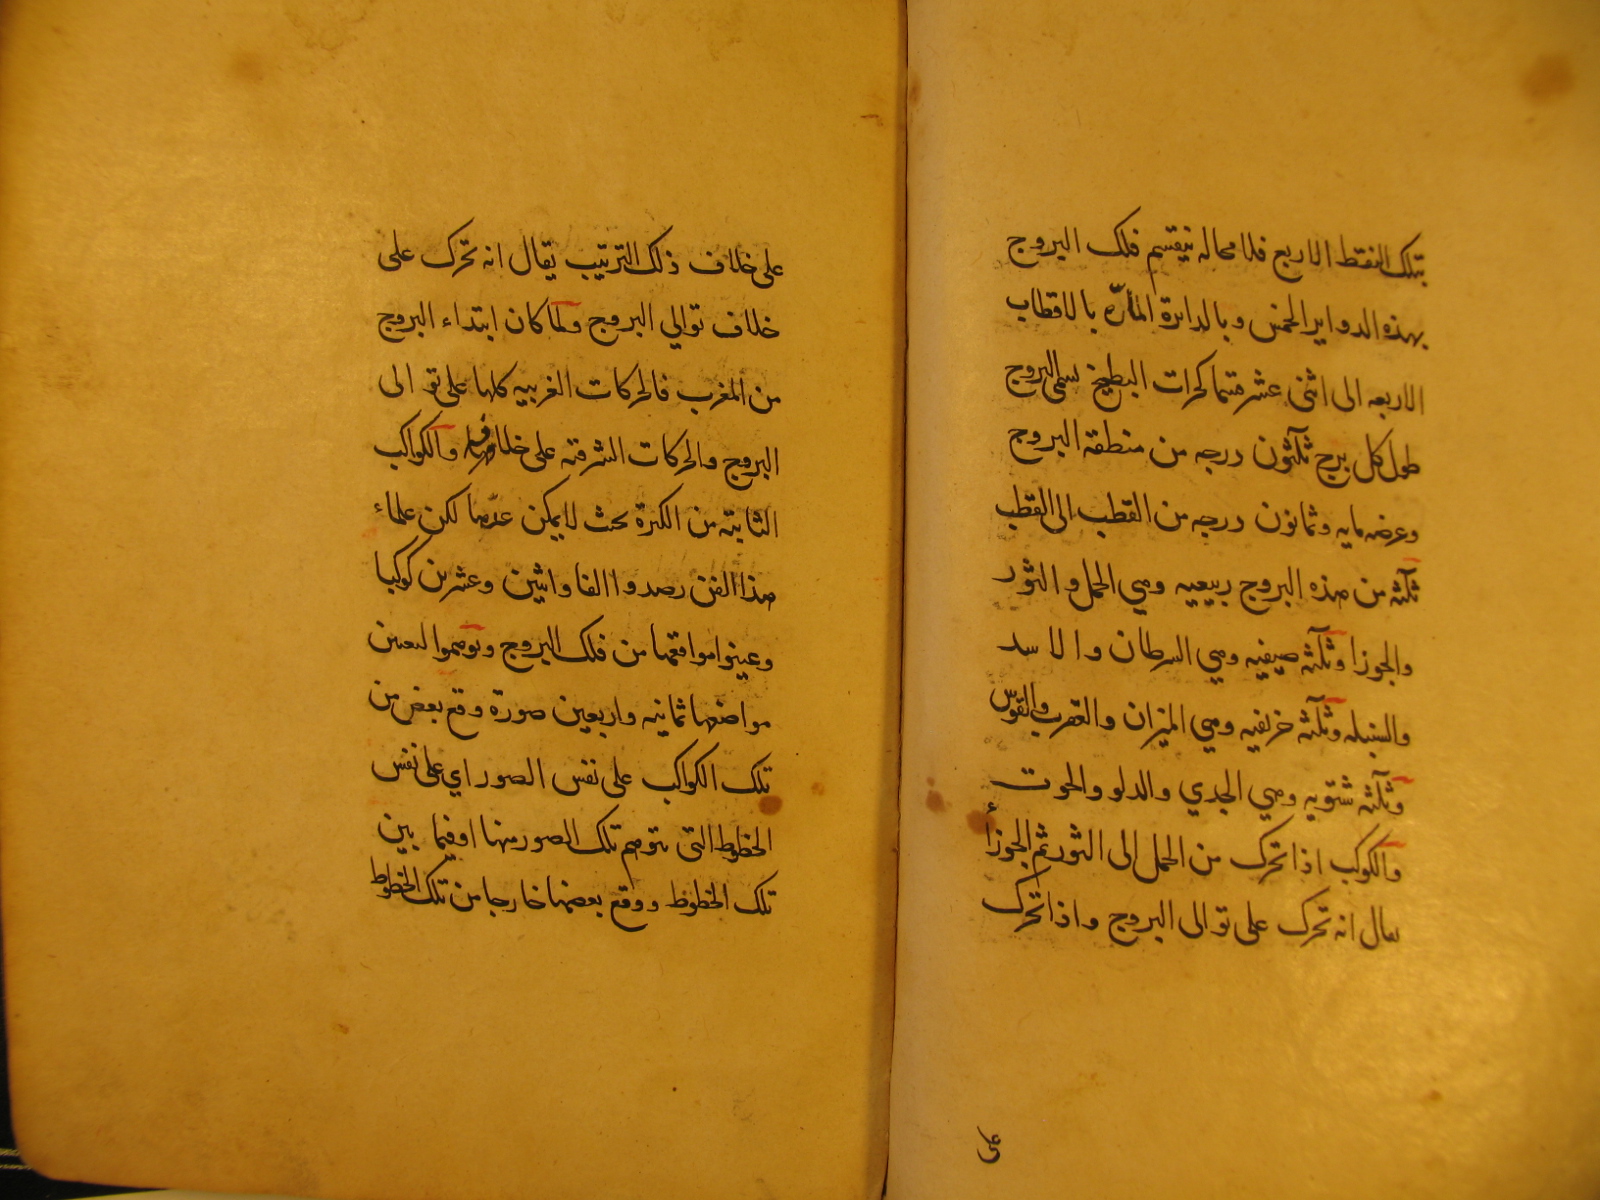 بتلك النقط الاربع فلا محاله ينقسم فلك البروج
بهذه الدواير الخمس وبالدايرة المارّه بالاقطاب
الاربعه الى اثنى عشر قسما كحزات البطيخ سمى البروج
طول كل برج ثلثون درجه من منطقه البروج
وعرضه مايه وثمانون درجه من القطب الى القطب
ثلثه من هذه البروج ربيعيه وهي الحمل والثور
والجوزا وثلثه صيفيه وهي السرطان والاسد
والسنبله وثلثه خريفيه وهي الميزان والعقرب والقوس
وثلثه شتويه وهي الجدي والدلو والحوت
والكوكب اذا تحرك من الحمل الى الثور ثم الجوزاء
يقال انه تحرك على توالى البروج واذا تحرك
على
على خلاف ذلك الترتيب يقال انه تحرك على
خلاف توالي البروج ولما كان ابتداء البروج
من المغرب فالحركات الغربيه كلها على توالى
البروج والحركات الشرقيه على خلافها والكواكب
الثابته من الكثرة بحيث لا يمكن عدّها لكن علماء
هذا الفن رصدوا الفا واثنين وعشرين كوكبا
وعينوا مواقعها من فلك البروج وتوهموا لتعين
مواضعها ثمانيه واربعين صورة وقع بعض من
تلك الكواكب على نفس الصور اي على نفس
الخطوط التى تتوهم تلك الصور منها او فيما بين
تلك الخطوط ووقع بعضها خارجا من تلك الخطوط